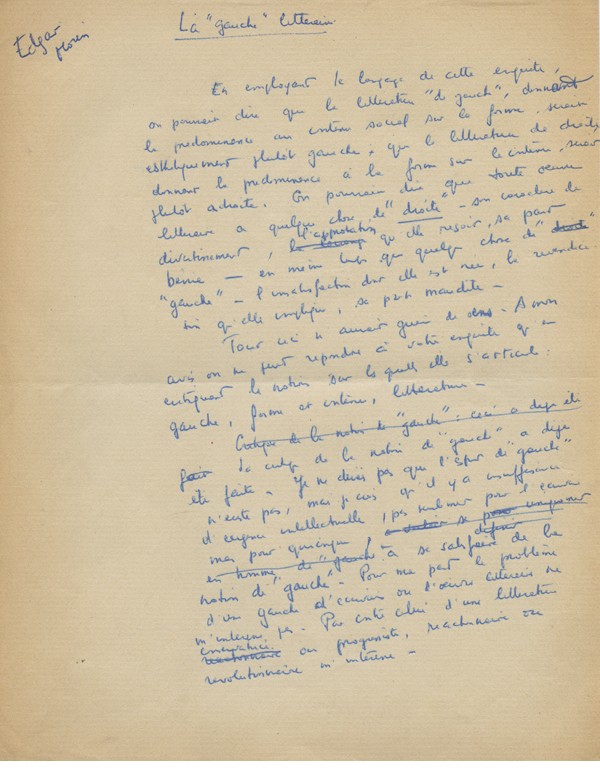 La "gauche" littéraire
Edgar
Morin
En employant le langage de cette enquête,
on pourrait dire que la littérature "de gauche", donnant
la prédominance au contenu social sur la forme, serait
esthétiquement plutôt gauche, que la littérature de droite,
donnant la prédominance à la forme sur le contenu, serait
plutôt adroite. On pourrait dire que toute oeuvre
littéraire a quelque chose de "droite" - son caractère de
divertissement, l'approbation qu'elle reçoit, sa part
bénie - en même temps que quelque chose de "
"gauche" - l'insatisfaction dont elle est née, la revendica-
tion qu'elle implique, sa part maudite -
Tout ceci n'aurait guère de sens. A mon
avis on ne peut répondre à votre enquête qu'en
critiquant les notions sur lesquelles elle s'articule :
gauche, forme et contenu, littérature -
Critique de la notion de "gauche" : ceci a déjà été
fait La critique de la notion de "gauche" a déjà
été faite - Je ne dirais pas que l'esprit de "gauche"
n'existe pas, mais je crois qu'il y a insuffisance
d'exigence intellectuelle, pas seulement pour l'écrivain
mais pour quiconque, à se définir uniquement
en homme de "gauche" à se satisfaire de la
notion de "gauche" - Pour ma part le problème
d'un gauche d'écrivain ou l'oeuvre littéraire ne
m'intéresse pas - Par contre celui d'une littérature
conservatrice
réactionnaire ou progressiste, réactionnaire ou
révolutionnaire m'intéresse -